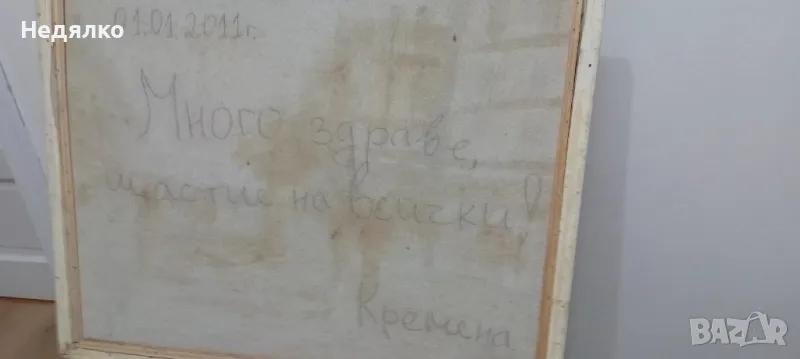 Недялко
01.01.2011г.
Много здраве,
щастие на всички!
Кремена
BAZAR